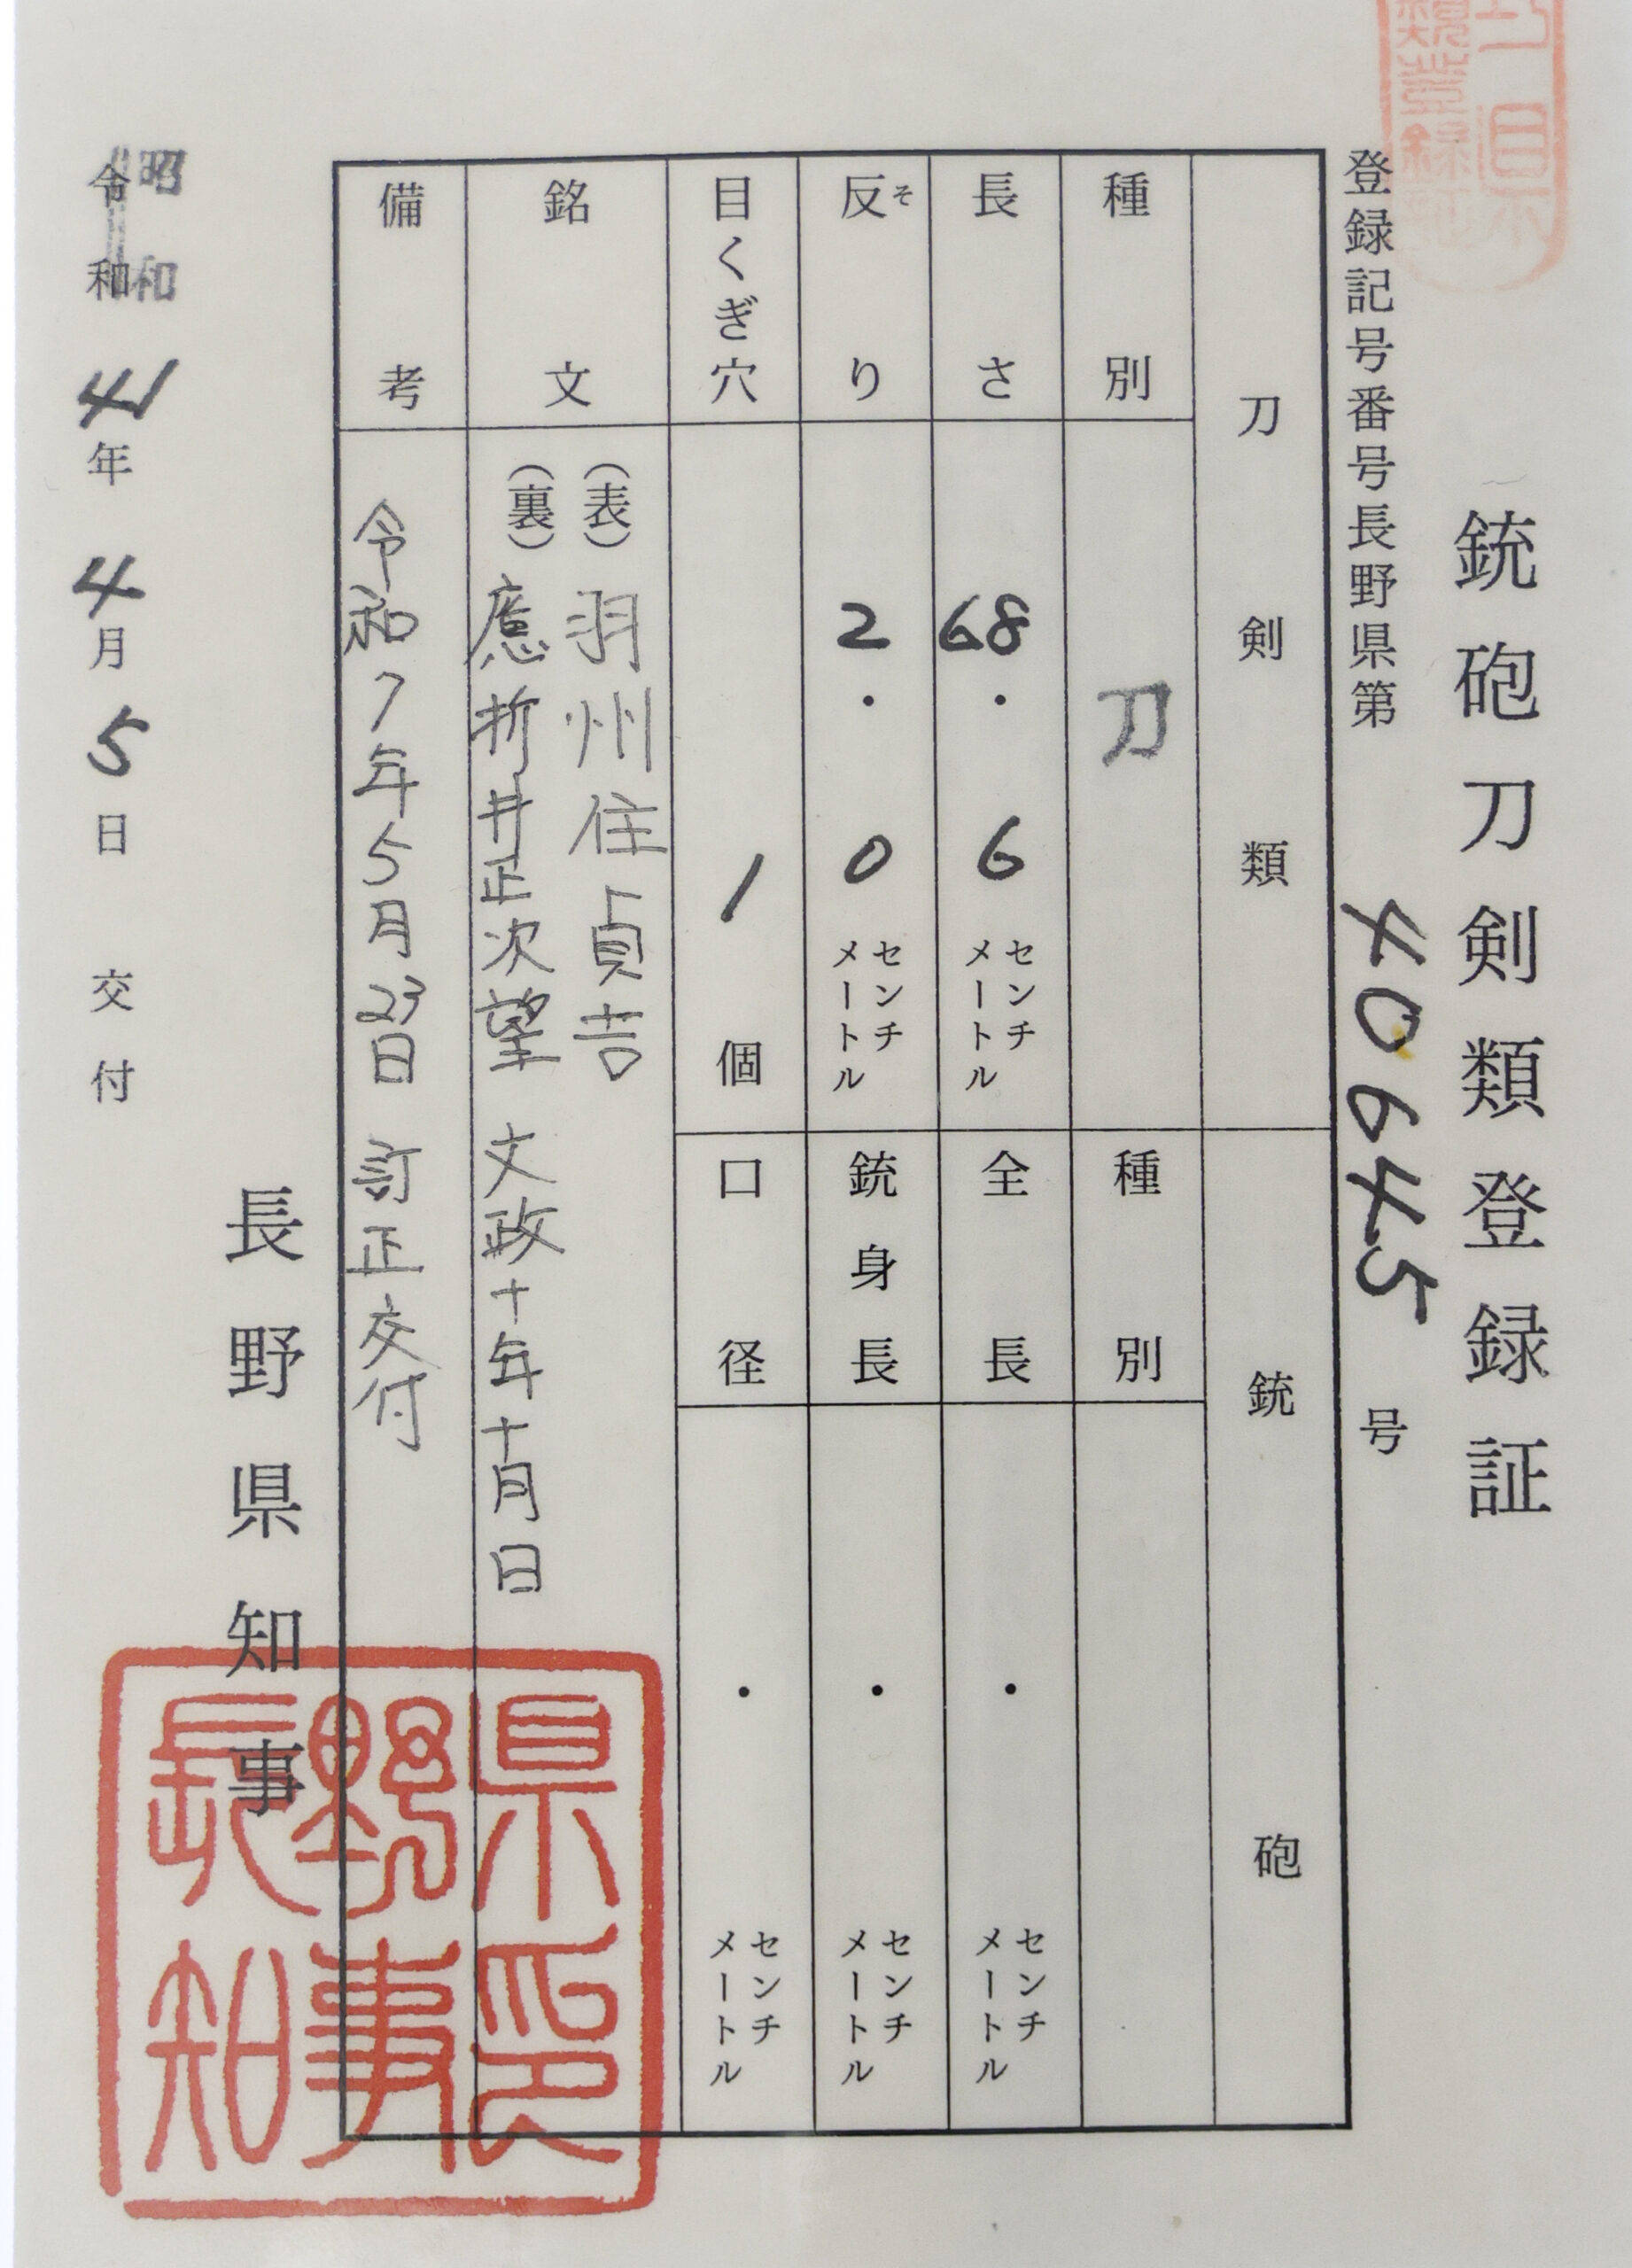 銃砲刀剣類登録証
登録記号番号長野県第 40645 号
刀剣類
種別 刀
長さ 68.6 センチメートル
反り そ 2.0 センチメートル
目くぎ穴 1 個
銃砲
種別
全長 ・ センチメートル
銃身長 ・ センチメートル
口径 ・ センチメートル
銘文
(表) 羽州住貞吉
(裏) 應折井正次望 文政十年十月日
備考 令和7年5月23日 訂正交付
長野県知事
昭和
令和 41年 4月 5日 交付
長野県知事印